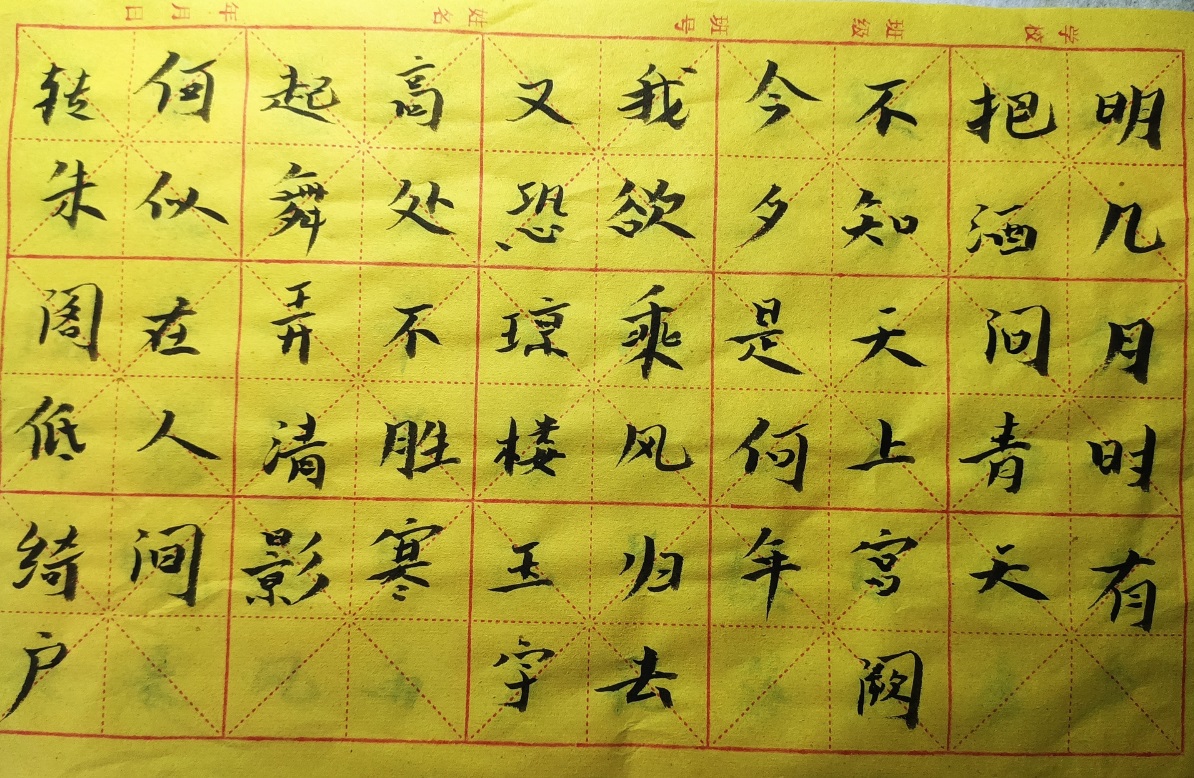 学校 班级 班号 姓名 年 月 日
明几月时有
把酒问青天
不知天上宫阙
今夕是何年
我欲乘风归去
又恐琼楼玉宇
高处不胜寒
起舞弄清影
何似在人间
转朱阁低绮户